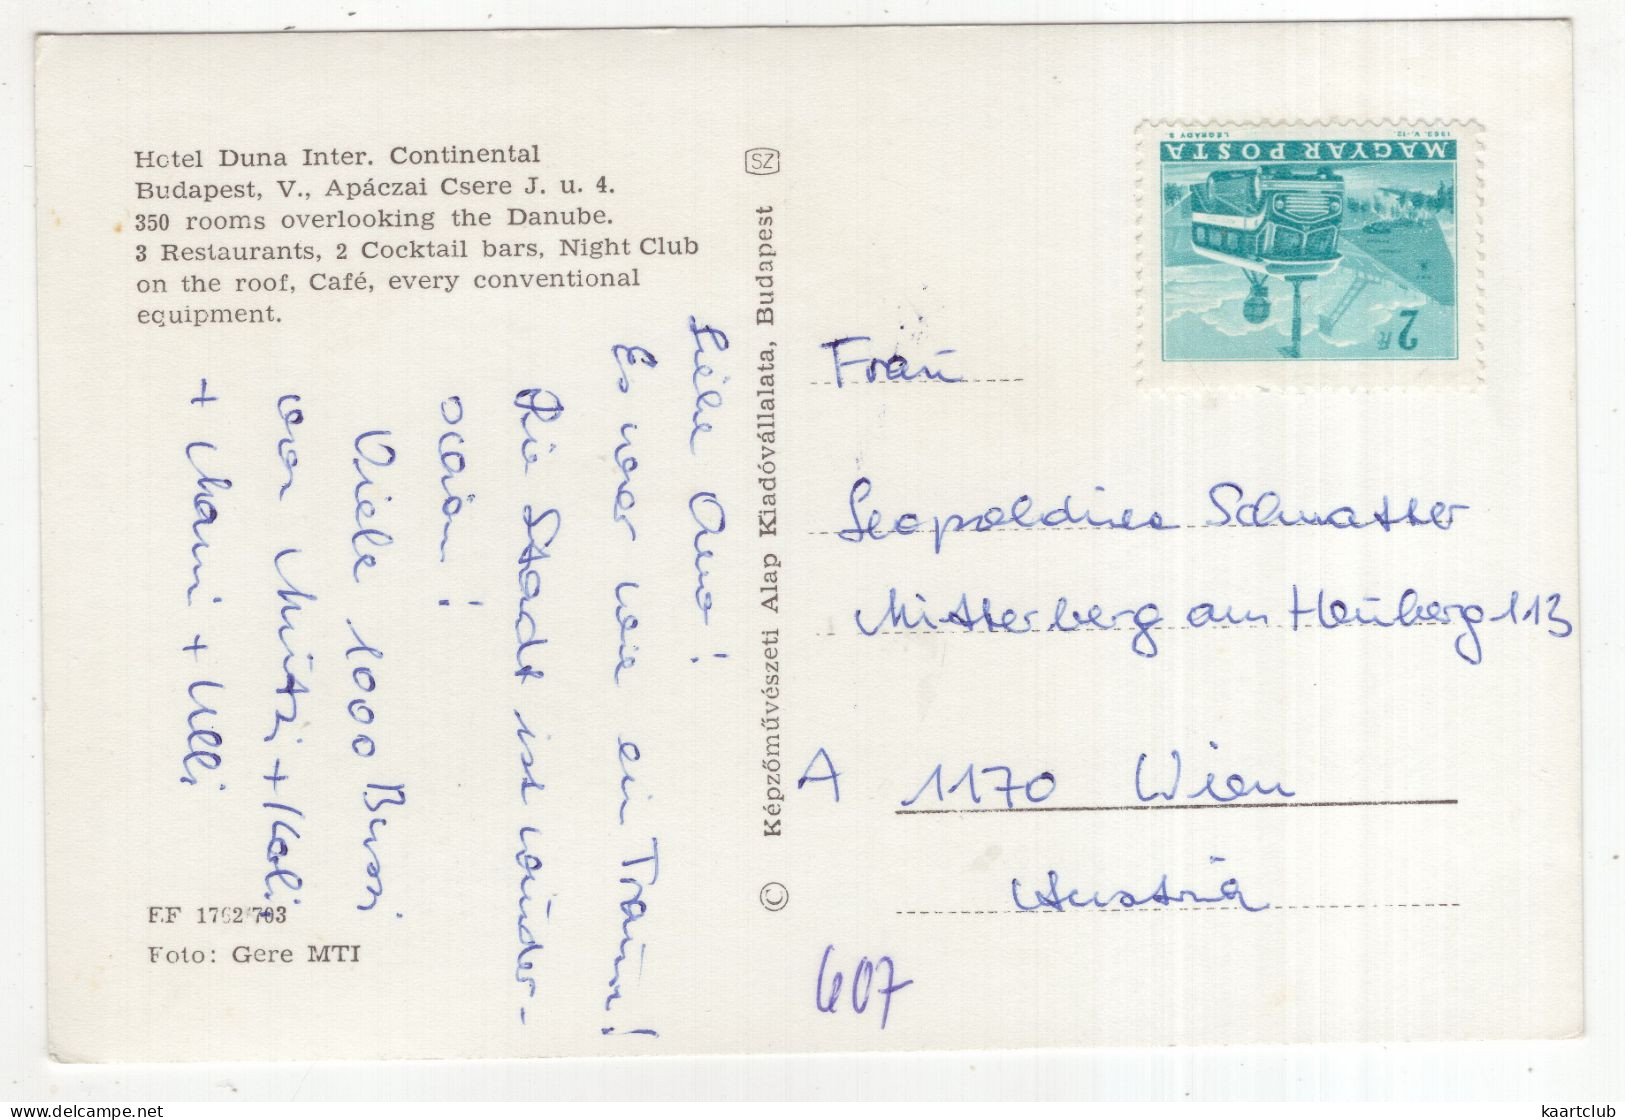 Hotel Duna Inter. Continental
Budapest, V., Apáczai Csere J. u. 4.
350 rooms overlooking the Danube.
3 Restaurants, 2 Cocktail bars, Night Club
on the roof, Café, every conventional
equipment.
Liebe Oma!
Es war wie ein Traum!
Die Stadt ist wunder-
schön!
Viele 1000 Bussi
von Mitzi +
+ Mami + Ulli
FF 1762/703
Foto: Gere MTI
SZ
© Képzőművészeti Alap Kiadóvállalata, Budapest
MAGYAR POSTA
1963. V.-12
LÉGRÁDY S.
2 Ft
Frau
Leopoldine Schnatter
Mitterberg am Heuberg 113
A 1170 Wien
Austria
607
delcampe.net
kaartclub